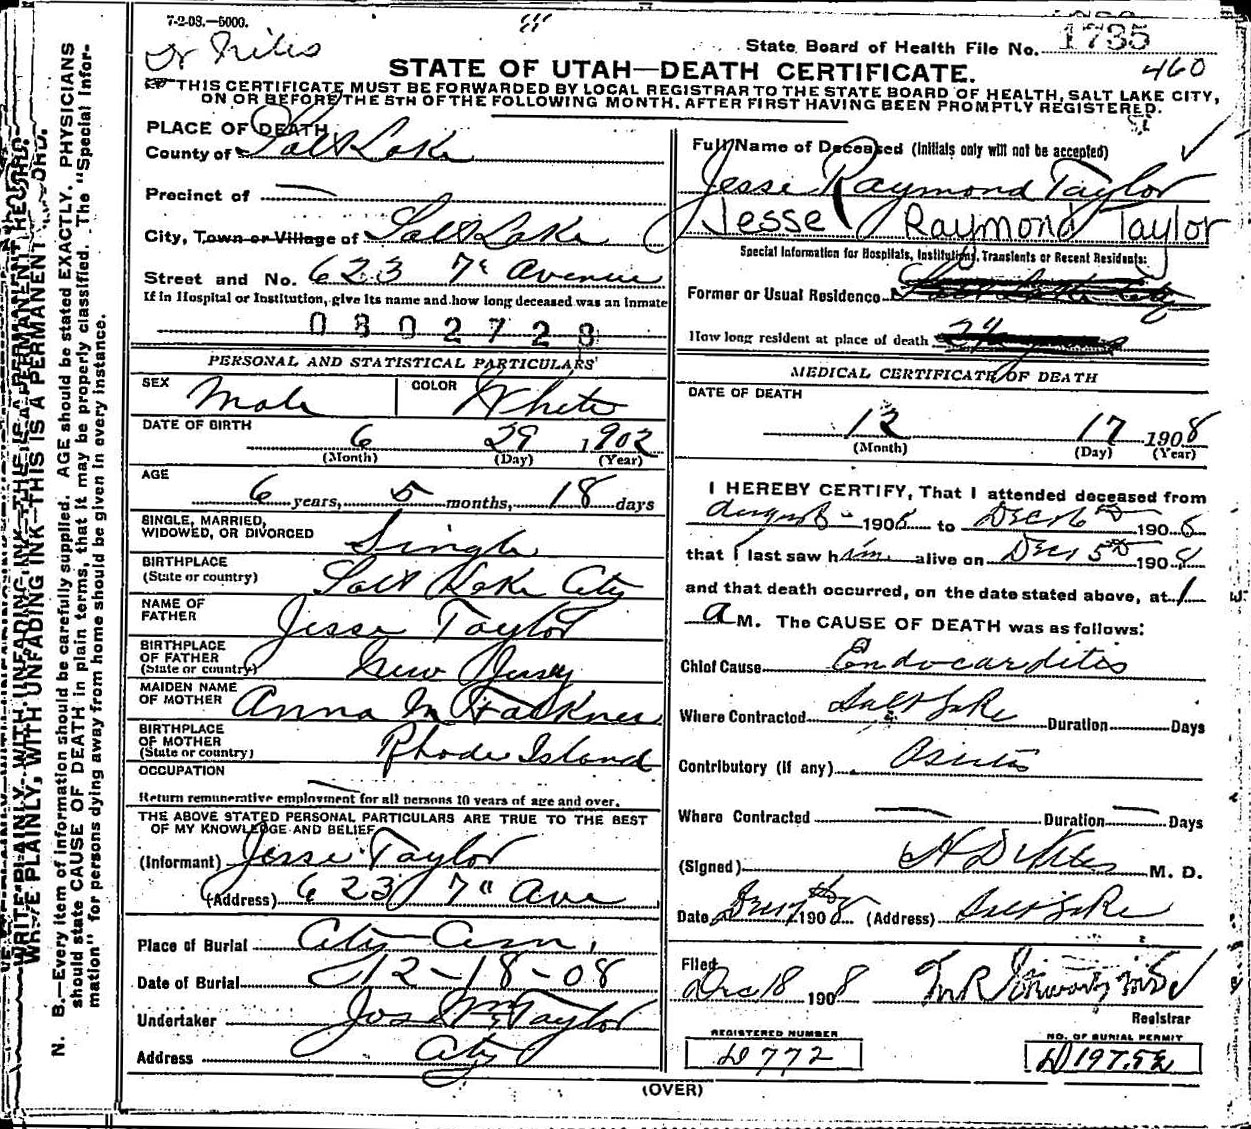 7-2-08.—5000.
Dr Niles
State Board of Health File No. 1735
460
STATE OF UTAH—DEATH CERTIFICATE.
THIS CERTIFICATE MUST BE FORWARDED BY LOCAL REGISTRAR TO THE STATE BOARD OF HEALTH, SALT LAKE CITY,
ON OR BEFORE THE 5TH OF THE FOLLOWING MONTH, AFTER FIRST HAVING BEEN PROMPTLY REGISTERED.
WRITE PLAINLY, WITH UNFADING INK—THIS IS A PERMANENT RECORD.
N. B.—Every item of information should be carefully supplied. AGE should be stated EXACTLY. PHYSICIANS
should state CAUSE OF DEATH in plain terms, that it may be properly classified. The "Special Infor-
mation" for persons dying away from home should be given in every instance.
PLACE OF DEATH
County of Salt Lake
Precinct of —
City, Town or Village of Salt Lake
Street and No. 623 7th Avenue
If in Hospital or Institution, give its name and how long deceased was an inmate
0802728
PERSONAL AND STATISTICAL PARTICULARS
SEX Male COLOR White
DATE OF BIRTH 6 29 1902
(Month) (Day) (Year)
AGE
6 years, 5 months, 18 days
SINGLE, MARRIED,
WIDOWED, OR DIVORCED Single
BIRTHPLACE
(State or country) Salt Lake City
NAME OF
FATHER Jesse Taylor
BIRTHPLACE
OF FATHER
(State or country) New Jersey
MAIDEN NAME
OF MOTHER Anna M Faulkner
BIRTHPLACE
OF MOTHER
(State or country) Rhode Island
OCCUPATION —
Return remunerative employment for all persons 10 years of age and over.
THE ABOVE STATED PERSONAL PARTICULARS ARE TRUE TO THE BEST
OF MY KNOWLEDGE AND BELIEF
(Informant) Jesse Taylor
(Address) 623 7" Ave
Place of Burial City Cem.
Date of Burial 12-18-08
Undertaker Jos Wm Taylor
Address City
Full Name of Deceased (Initials only will not be accepted)
Jesse Raymond Taylor
Jesse Raymond Taylor
Special Information for Hospitals, Institutions, Transients or Recent Residents:
Former or Usual Residence Salt Lake City
How long resident at place of death 24
MEDICAL CERTIFICATE OF DEATH
DATE OF DEATH
12 17 1908
(Month) (Day) (Year)
I HEREBY CERTIFY, That I attended deceased from
August 1908 to Dec 16th 1908
that I last saw him alive on Dec 15th 1908
and that death occurred, on the date stated above, at 1
A M. The CAUSE OF DEATH was as follows:
Chief Cause Endocarditis
Where Contracted Salt Lake Duration Days
Contributory (if any) Asites
Where Contracted — Duration — Days
(Signed) H D Niles M. D.
Date Dec 17th 1908 (Address) Salt Lake
Filed
Dec 18 1908
Registrar
REGISTERED NUMBER
D 772
NO. OF BURIAL PERMIT
(OVER)